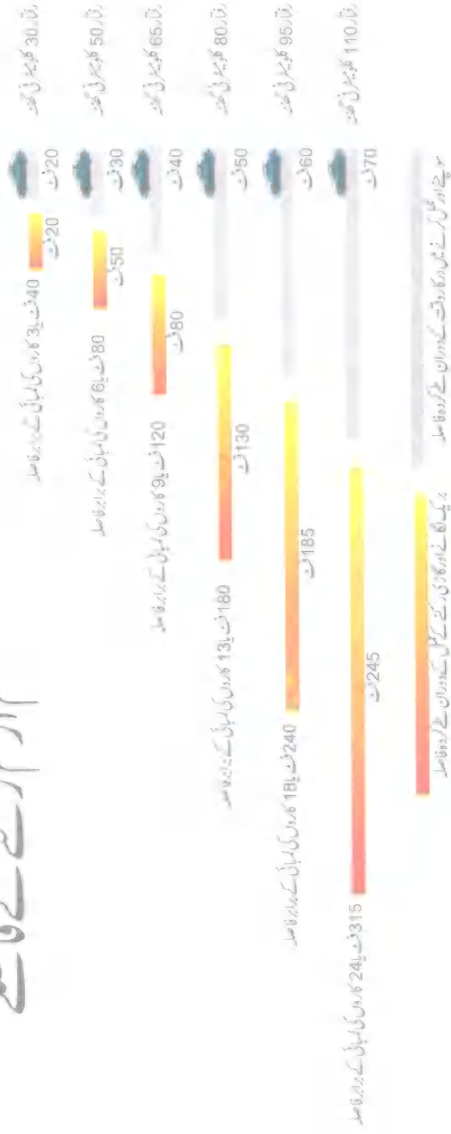 کم از کم رکنے کے فاصلے
رفتار 30 کلومیٹر فی گھنٹہ
20فٹ
20فٹ
40فٹ یا 3 کاروں کی لمبائی کے برابر فاصلہ
رفتار 50 کلومیٹر فی گھنٹہ
30فٹ
50فٹ
80فٹ یا 6 کاروں کی لمبائی کے برابر فاصلہ
رفتار 65 کلومیٹر فی گھنٹہ
40فٹ
80فٹ
120فٹ یا 9 کاروں کی لمبائی کے برابر فاصلہ
رفتار 80 کلومیٹر فی گھنٹہ
50فٹ
130فٹ
180فٹ یا 13 کاروں کی لمبائی کے برابر فاصلہ
رفتار 95 کلومیٹر فی گھنٹہ
60فٹ
185فٹ
240فٹ یا 18 کاروں کی لمبائی کے برابر فاصلہ
رفتار 110 کلومیٹر فی گھنٹہ
70فٹ
245فٹ
315فٹ یا 24 کاروں کی لمبائی کے برابر فاصلہ
سوچنے اور عمل کرنے میں درکار وقت کے دوران طے کردہ فاصلہ
بریک لگانے اور گاڑی رکنے کے عمل کے دوران طے کردہ فاصلہ